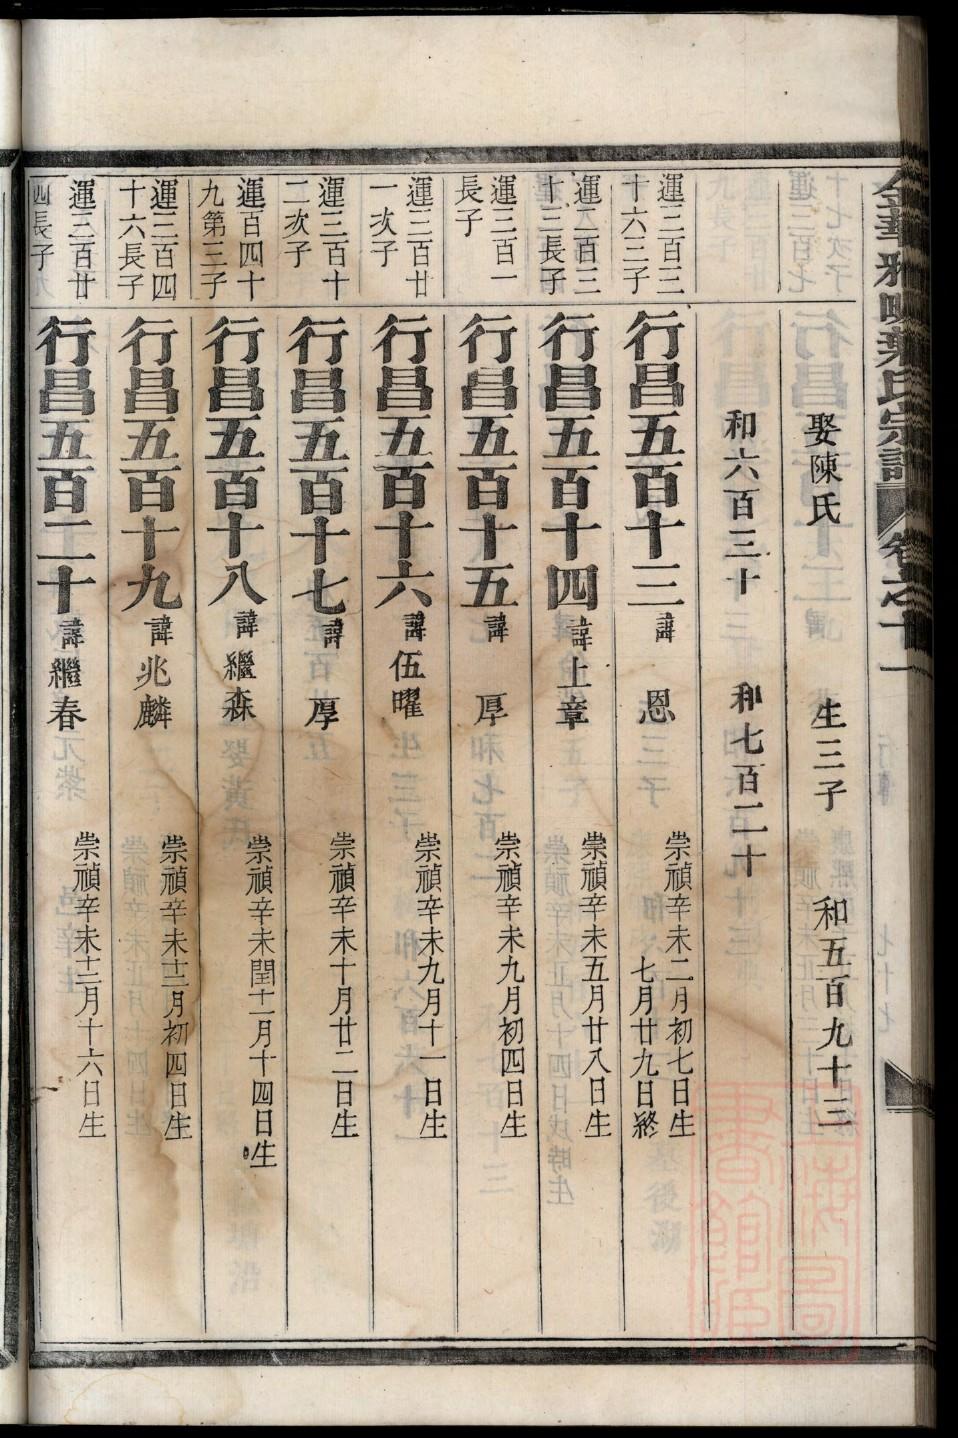 娶陳氏　生三子　和五百九十三
和六百三十　和七百二十
運三百三十六三子
行昌五百十三　諱　恩　崇禎辛未二月初七日生
七月廿九日終
運二百三十三長子
行昌五百十四　諱上章　崇禎辛未五月廿八日生
運三百一長子
行昌五百十五　諱　厚　崇禎辛未九月初四日生
運三百廿一次子
行昌五百十六　諱伍曜　崇禎辛未九月十一日生
運三百十二次子
行昌五百十七　諱　厚　崇禎辛未十月廿二日生
運百四十九第三子
行昌五百十八　諱繼森　崇禎辛未閏十一月十四日生
運三百四十六長子
行昌五百十九　諱兆麟　崇禎辛未十二月初四日生
運三百廿四長子
行昌五百二十　諱繼春　崇禎辛未十二月十六日生